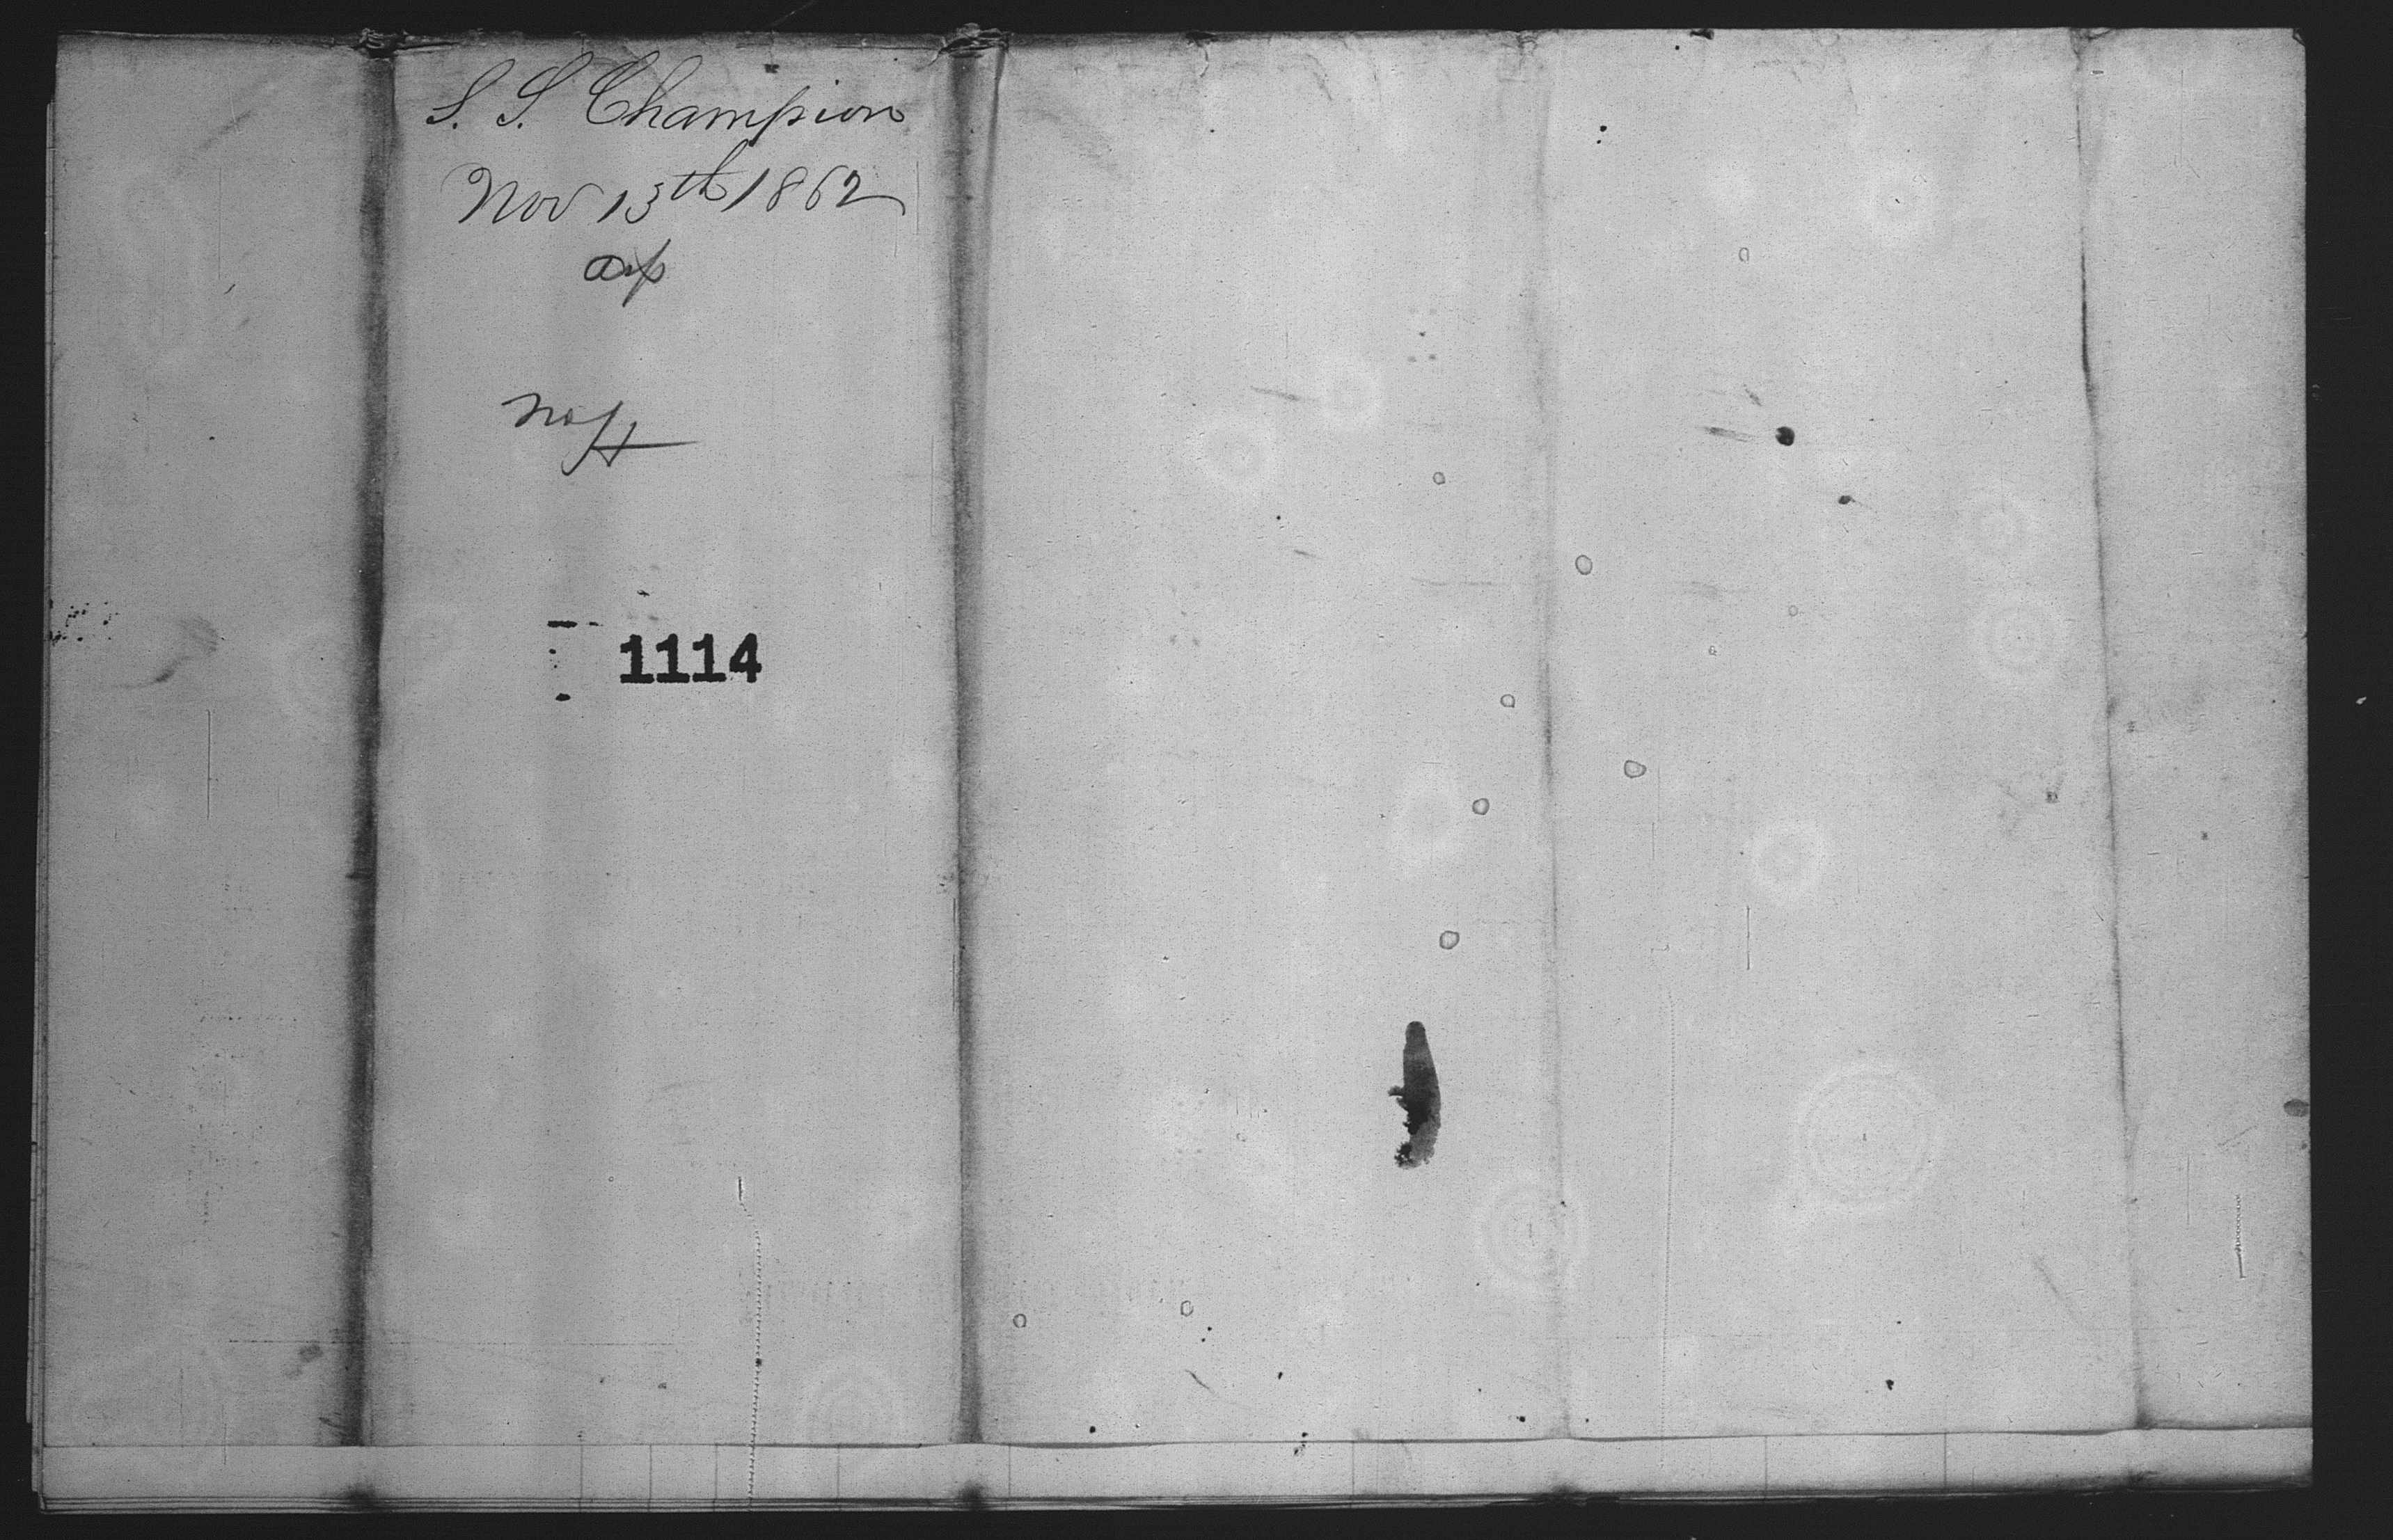 S. S. Champion
Nov 13th 1862
1114